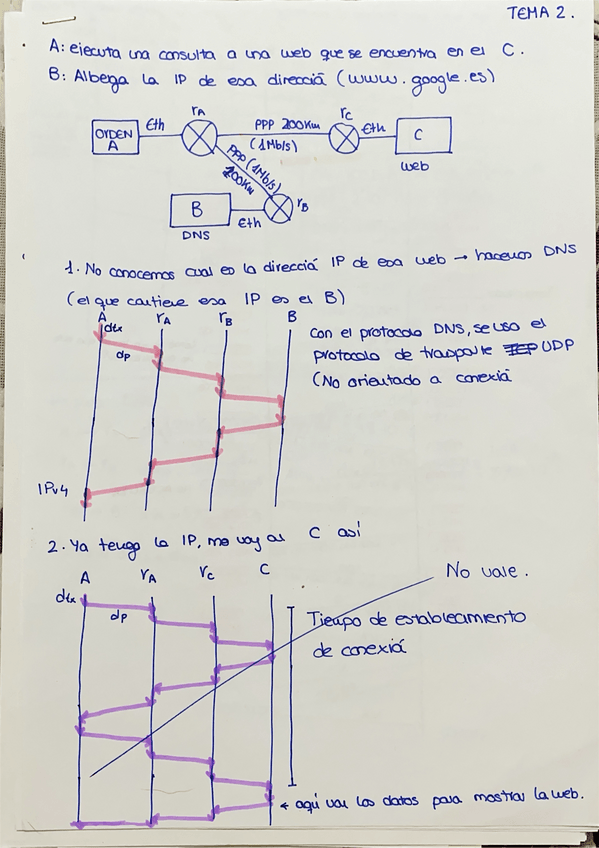 TEMA 2.
A: ejecuta una consulta a una web que se encuentra en el C.
B: Alberga la IP de esa dirección (www.google.es)
ORDEN A
Eth
rA
PPP 200Km
(1Mb/s)
rC
Eth
C
web
PPP (1Mb/s)
200Km
B
DNS
Eth
rB
1. No conocemos cual es la dirección IP de esa web → hacemos DNS
(el que contiene esa IP es el B)
A rA rB B
dtx
dp
IPv4
Con el protocolo DNS, se usa el
protocolo de trasporte UDP
(No orientado a conexión
2. Ya tengo la IP, me voy al C así
A rA rC C
No vale.
dtx
dp
Tiempo de establecimiento
de conexión
← aquí van los datos para mostrar la web.